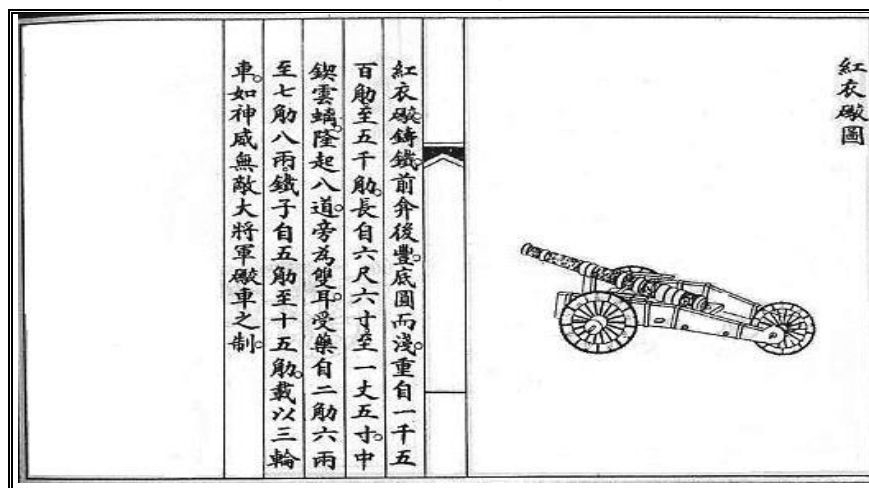 紅衣礮圖
紅衣礮。鑄鐵。前弇後豐。底圓而淺。重自一千五
百觔至五千觔。長自六尺六寸至一丈五寸。中
鍥雲螭。隆起八道。旁為雙耳。受藥自二觔六兩
至七觔八兩。鐵子自五觔至十五觔。載以三輪
車。如神威無敵大將軍礮車之制。